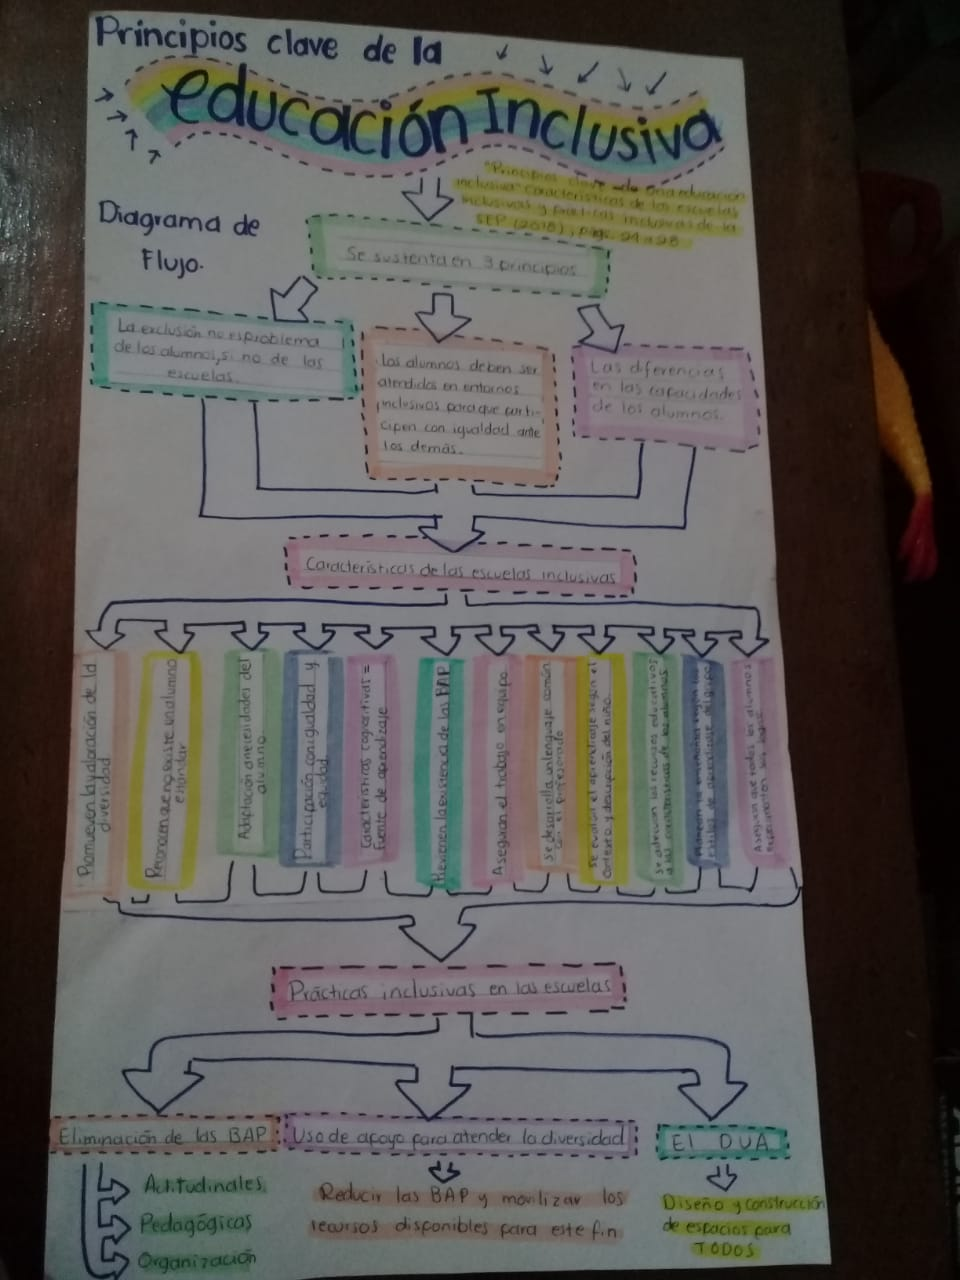 Principios clave de la
educación Inclusiva
"Principios clave de una educación
inclusiva" características de las escuelas
inclusivas y prácticas inclusivas de la
SEP (2018), págs. 24 a 28
Diagrama de
Flujo.
Se sustenta en 3 principios
La exclusión no es problema
de los alumnos, si no de las
escuelas.
Los alumnos deben ser
atendidos en entornos
inclusivos para que parti-
cipen con igualdad ante
los demás.
Las diferencias
en las capacidades
de los alumnos.
Características de las escuelas inclusivas
Promueven la valoración de la
diversidad
Reconocen que no existe un alumno
estándar
Adaptación a necesidades del
alumno
Participación con igualdad y
equidad
Características cognitivas =
Fuente de aprendizaje
Previenen la existencia de las BAP
Aseguran el trabajo en equipo
Se desarrolla un lenguaje común
con el profesorado
Se evalúa el aprendizaje según el
contexto y desempeño del niño.
Se adecuan los recursos educativos
a las características de los alumnos
estilos de aprendizaje del grupo
Aseguran que todos los alumnos
Prácticas inclusivas en las escuelas
Eliminación de las BAP
Uso de apoyo para atender la diversidad
El DUA
Actitudinales
Pedagógicas
Organización
Reducir las BAP y movilizar los
recursos disponibles para este fin
Diseño y construcción
de espacios para
TODOS